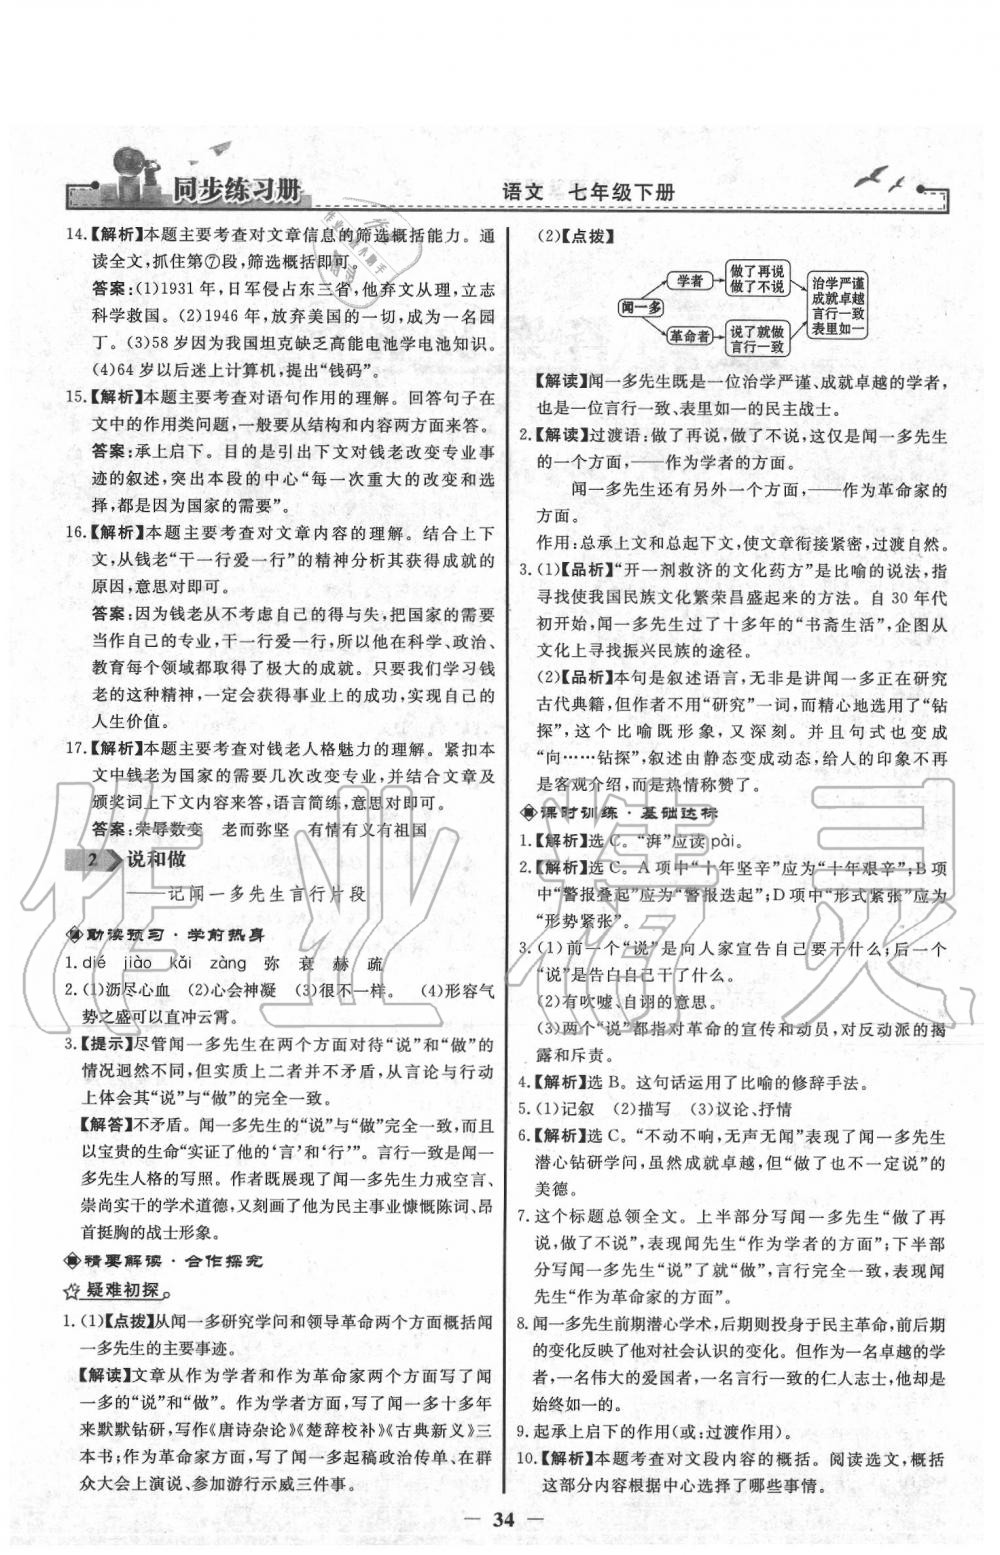 同步练习册
语文 七年级下册
14.【解析】本题主要考查对文章信息的筛选概括能力。通
读全文，抓住第⑦段，筛选概括即可。
答案：(1)1931年，日军侵占东三省，他弃文从理，立志
科学救国。(2)1946年，放弃美国的一切，成为一名园
丁。(3)58岁因为我国坦克缺乏高能电池学电池知识。
(4)64岁以后迷上计算机，提出“钱码”。
15.【解析】本题主要考查对语句作用的理解。回答句子在
文中的作用类问题，一般要从结构和内容两方面来答。
答案：承上启下。目的是引出下文对钱老改变专业事
迹的叙述，突出本段的中心“每一次重大的改变和选
择，都是因为国家的需要”。
16.【解析】本题主要考查对文章内容的理解。结合上下
文，从钱老“干一行爱一行”的精神分析其成就的
原因，意思对即可。
答案：因为钱老从不考虑自己的得与失，把国家的需要
当作自己的专业，干一行爱一行，所以他在科学、政治、
教育每个领域都取得了极大的成就。只要我们学习钱
老的这种精神，一定会获得事业上的成功，实现自己的
人生价值。
17.【解析】本题主要考查对钱老人格魅力的理解。紧扣本
文中钱老为国家的需要几次改变专业，并结合文章及
颁奖词上下文内容来答，语言简练，意思对即可。
答案：荣辱数变 老而弥坚 有情有义有祖国
2 说和做
——记闻一多先生言行片段
助读预习·学前热身
1. dié jiào kǎi zàng 弥 衰 赫 疏
2.(1)沥尽心血 (2)心会神凝 (3)很不一样。 (4)形容气
势之盛可以直冲云霄。
3.【提示】尽管闻一多先生在两个方面对待“说”和“做”的
情况迥然不同，但实质上二者并不矛盾，从言论与行动
上体会其“说”与“做”的完全一致。
【解答】不矛盾。闻一多先生的“说”与“做”完全一致，而且
以宝贵的生命“实证了他的‘言’和‘行’”。言行一致是闻一
多先生人格的写照。作者既展现了闻一多先生力戒空言、
崇尚实干的学术道德，又刻画了他为民主事业慷慨陈词、昂
首挺胸的战士形象。
精要解读·合作探究
疑难初探
1.(1)【点拨】从闻一多研究学问和领导革命两个方面概括闻
一多先生的主要事迹。
【解读】文章从作为学者和作为革命家两个方面写了闻
一多的“说”和“做”。作为学者方面，写了闻一多十多年
来默默钻研，写作《唐诗杂论》《楚辞校补》《古典新义》三
本书；作为革命家方面，写了闻一多起稿政治传单、在群
众大会上演说、参加游行示威三件事。
(2)【点拨】
闻一多
学者
做了再说
做了不说
革命者
说了就做
言行一致
治学严谨
成就卓越
言行一致
表里如一
【解读】闻一多先生既是一位治学严谨、成就卓越的学者，
也是一位言行一致、表里如一的民主战士。
2.【解读】过渡语：做了再说，做了不说，这仅是闻一多先生
的一个方面，——作为学者的方面。
闻一多先生还有另外一个方面，——作为革命家的
方面。
作用：总承上文和总起下文，使文章衔接紧密，过渡自然。
3.(1)【品析】“开一剂救济的文化药方”是比喻的说法，指
寻找使我国民族文化繁荣昌盛起来的方法。自30年代
初开始，闻一多先生过了十多年的“书斋生活”，企图从
文化上寻找振兴民族的途径。
(2)【品析】本句是叙述语言，无非是讲闻一多正在研究
古代典籍，但作者不用“研究”一词，而精心地选用了“钻
探”，这个比喻既形象，又深刻。并且句式也变成
“向……钻探”，叙述由静态变成动态，给人的印象不再
是客观介绍，而是热情称赞了。
课时训练·基础达标
1.【解析】选C。“湃”应读pài。
2.【解析】选C。A项中“十年坚辛”应为“十年艰辛”；B项
中“警报叠起”应为“警报迭起”；D项中“形式紧张”应为
“形势紧张”。
3.(1)前一个“说”是向人家宣告自己要干什么；后一个
“说”是告白自己干了什么。
(2)有吹嘘、自诩的意思。
(3)两个“说”都指对革命的宣传和动员，对反动派的揭
露和斥责。
4.【解析】选B。这句话运用了比喻的修辞手法。
5.(1)记叙 (2)描写 (3)议论、抒情
6.【解析】选C。“不动不响，无声无闻”表现了闻一多先生
潜心钻研学问，虽然成就卓越，但“也不一定说”的
美德。
7.这个标题总领全文。上半部分写闻一多先生“做了再
说，做了不说”，表现闻先生“作为学者的方面”；下半部
分写闻一多先生“说”了就“做”，言行完全一致，表现闻
先生“作为革命家的方面”。
8.闻一多先生前期潜心学术，后期投身于民主革命，前后期
的变化反映了他对社会认识的变化。但作为一名卓越的学
者，一名伟大的爱国者，一名言行一致的仁人志士，他却是
始终如一的。
9.起承上启下的作用(或：过渡作用)。
10.【解析】本题考查对文段内容的概括。阅读选文，概括
这部分内容根据中心选择了哪些事情。
— 34 —
作业精灵